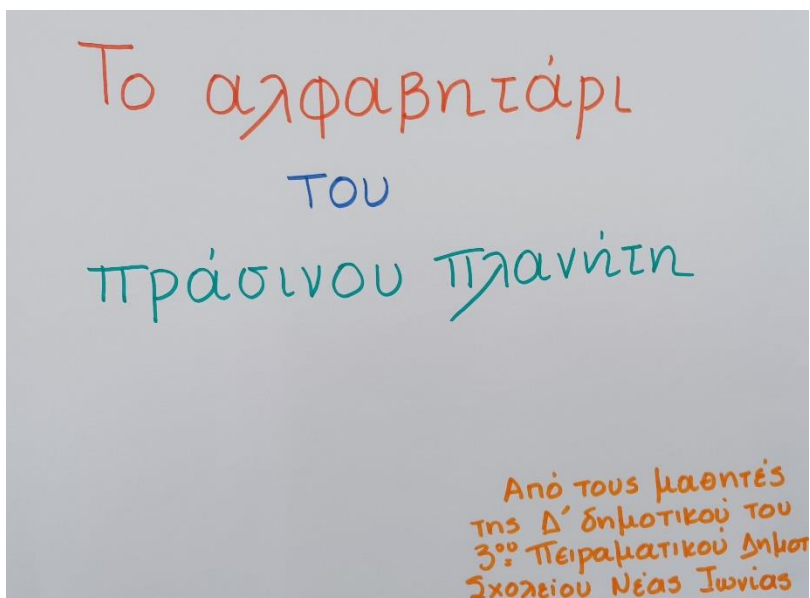 Το αλφαβητάρι
του
πράσινου πλανήτη
Από τους μαθητές
της Δ' δημοτικού του
3ου Πειραματικού Δημοτ
Σχολείου Νέας Ιωνίας